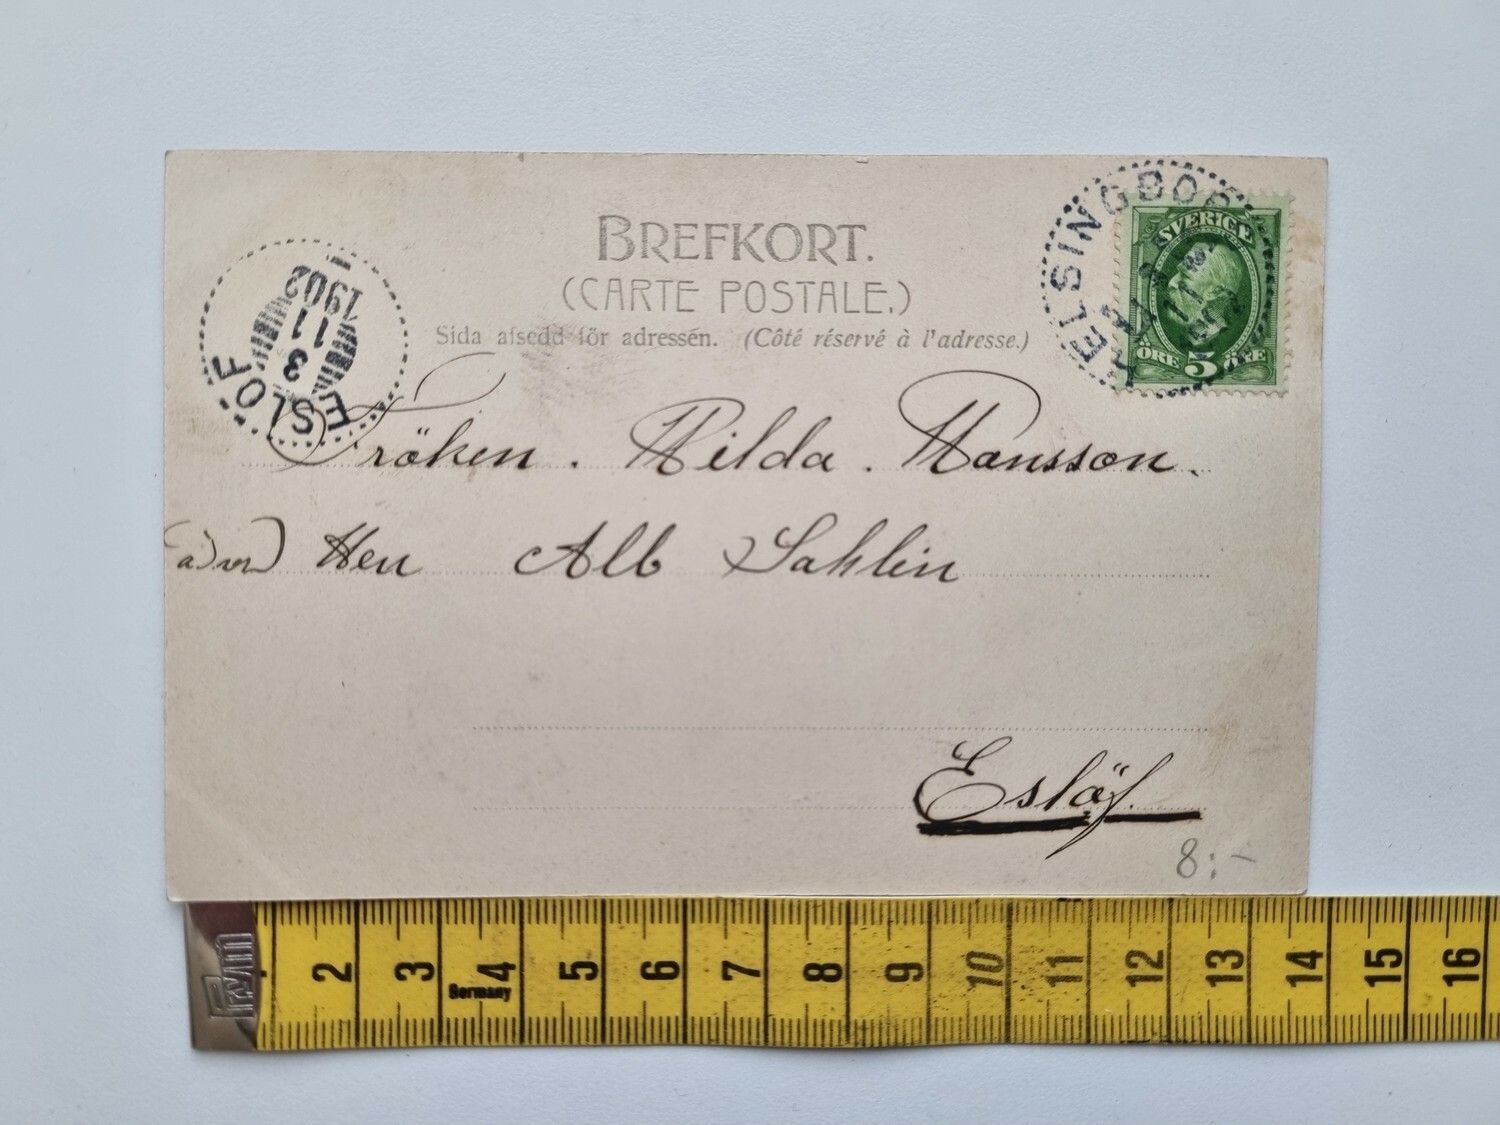 BREFKORT.
(CARTE POSTALE.)
Sida afsedd för adressen. (Côté réservé à l'adresse.)
HELSINGBORG
SVERIGE
ÖRE 5 ÖRE
ESLÖF
3
11
1902
Fröken. Hilda. Hansson.
Herr Alb Sahlin
Eslöf.
8:-
Prym
2 3 4 5 6 7 8 9 10 11 12 13 14 15 16
Germany